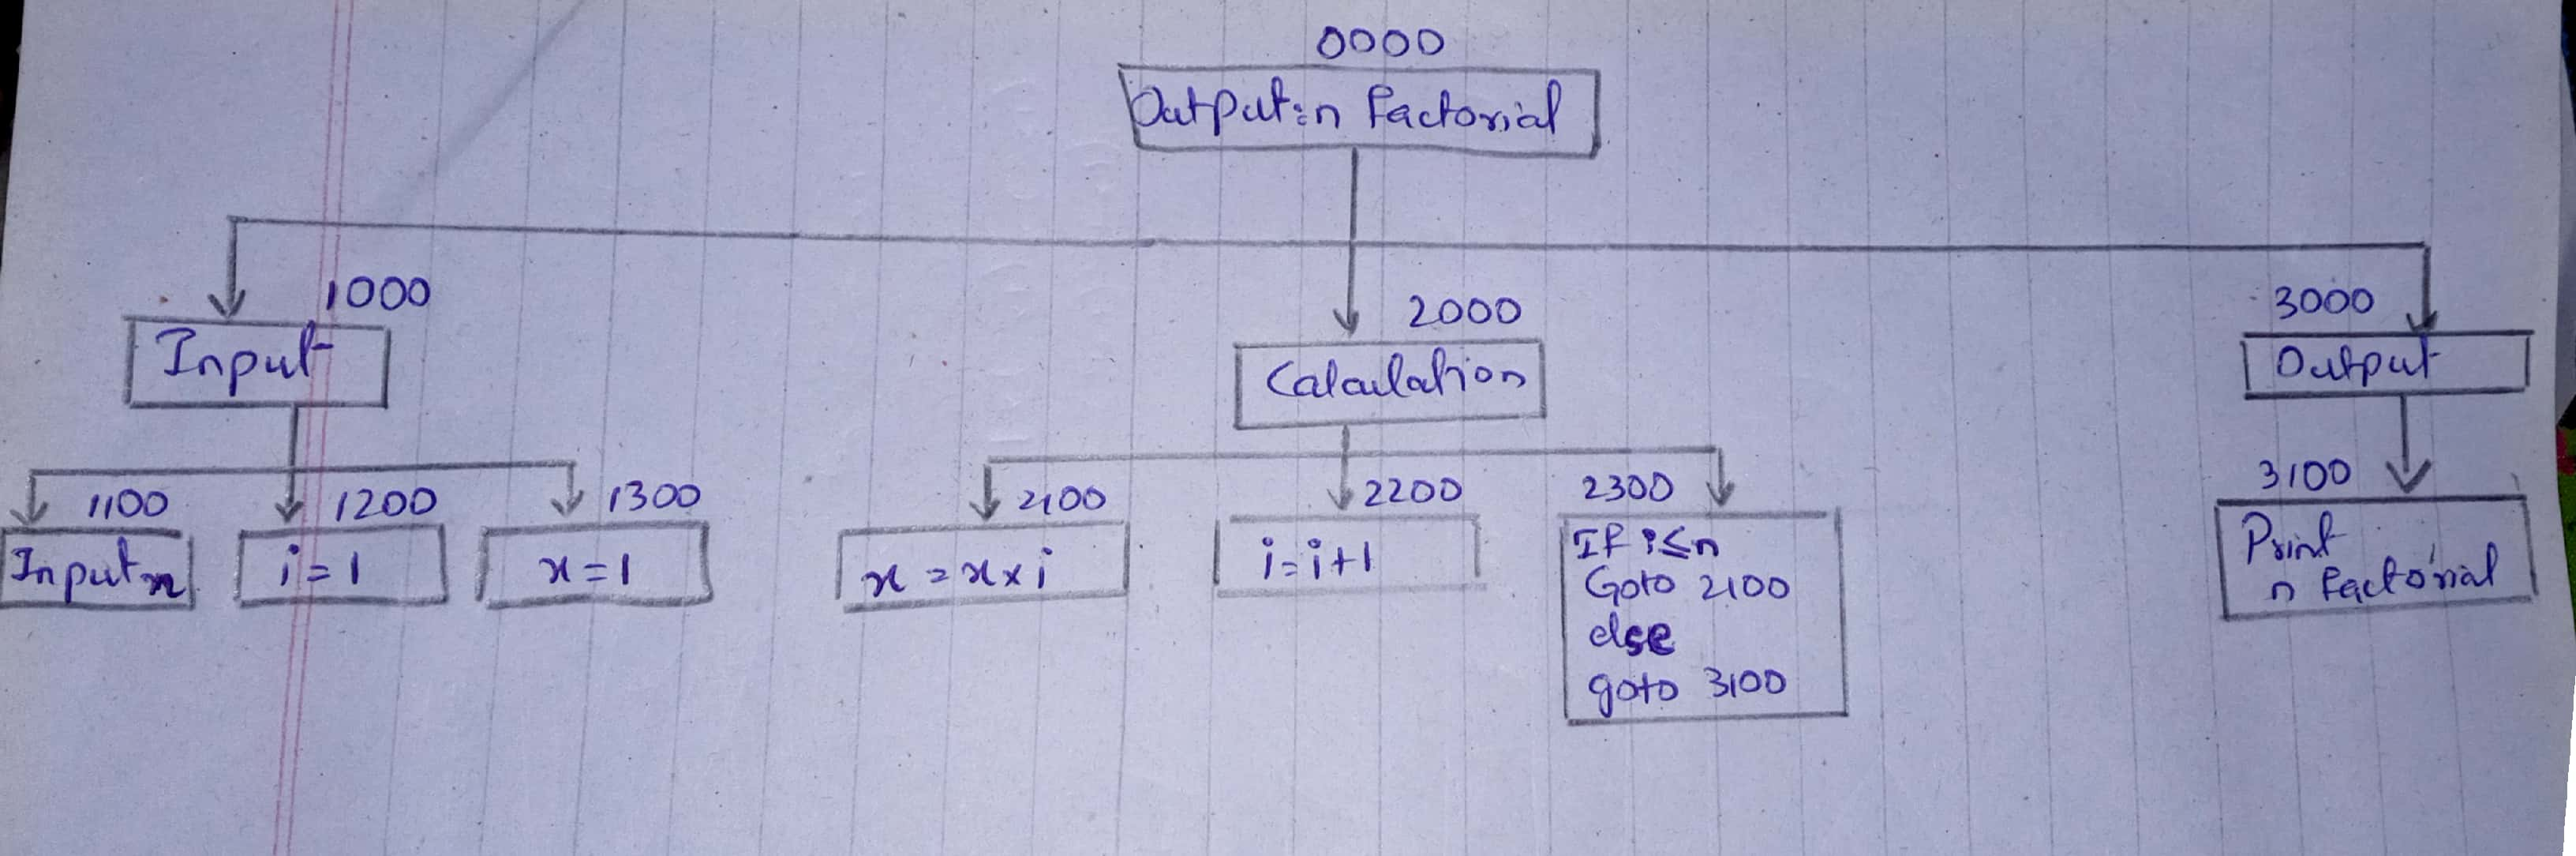 0000
Output:n factorial
1000
Input
2000
Calculation
3000
Output
1100
Input n
1200
i=1
1300
x=1
2100
x=x×i
2200
i=i+1
2300
If i≤n
Goto 2100
else
goto 3100
3100
Print
n factorial